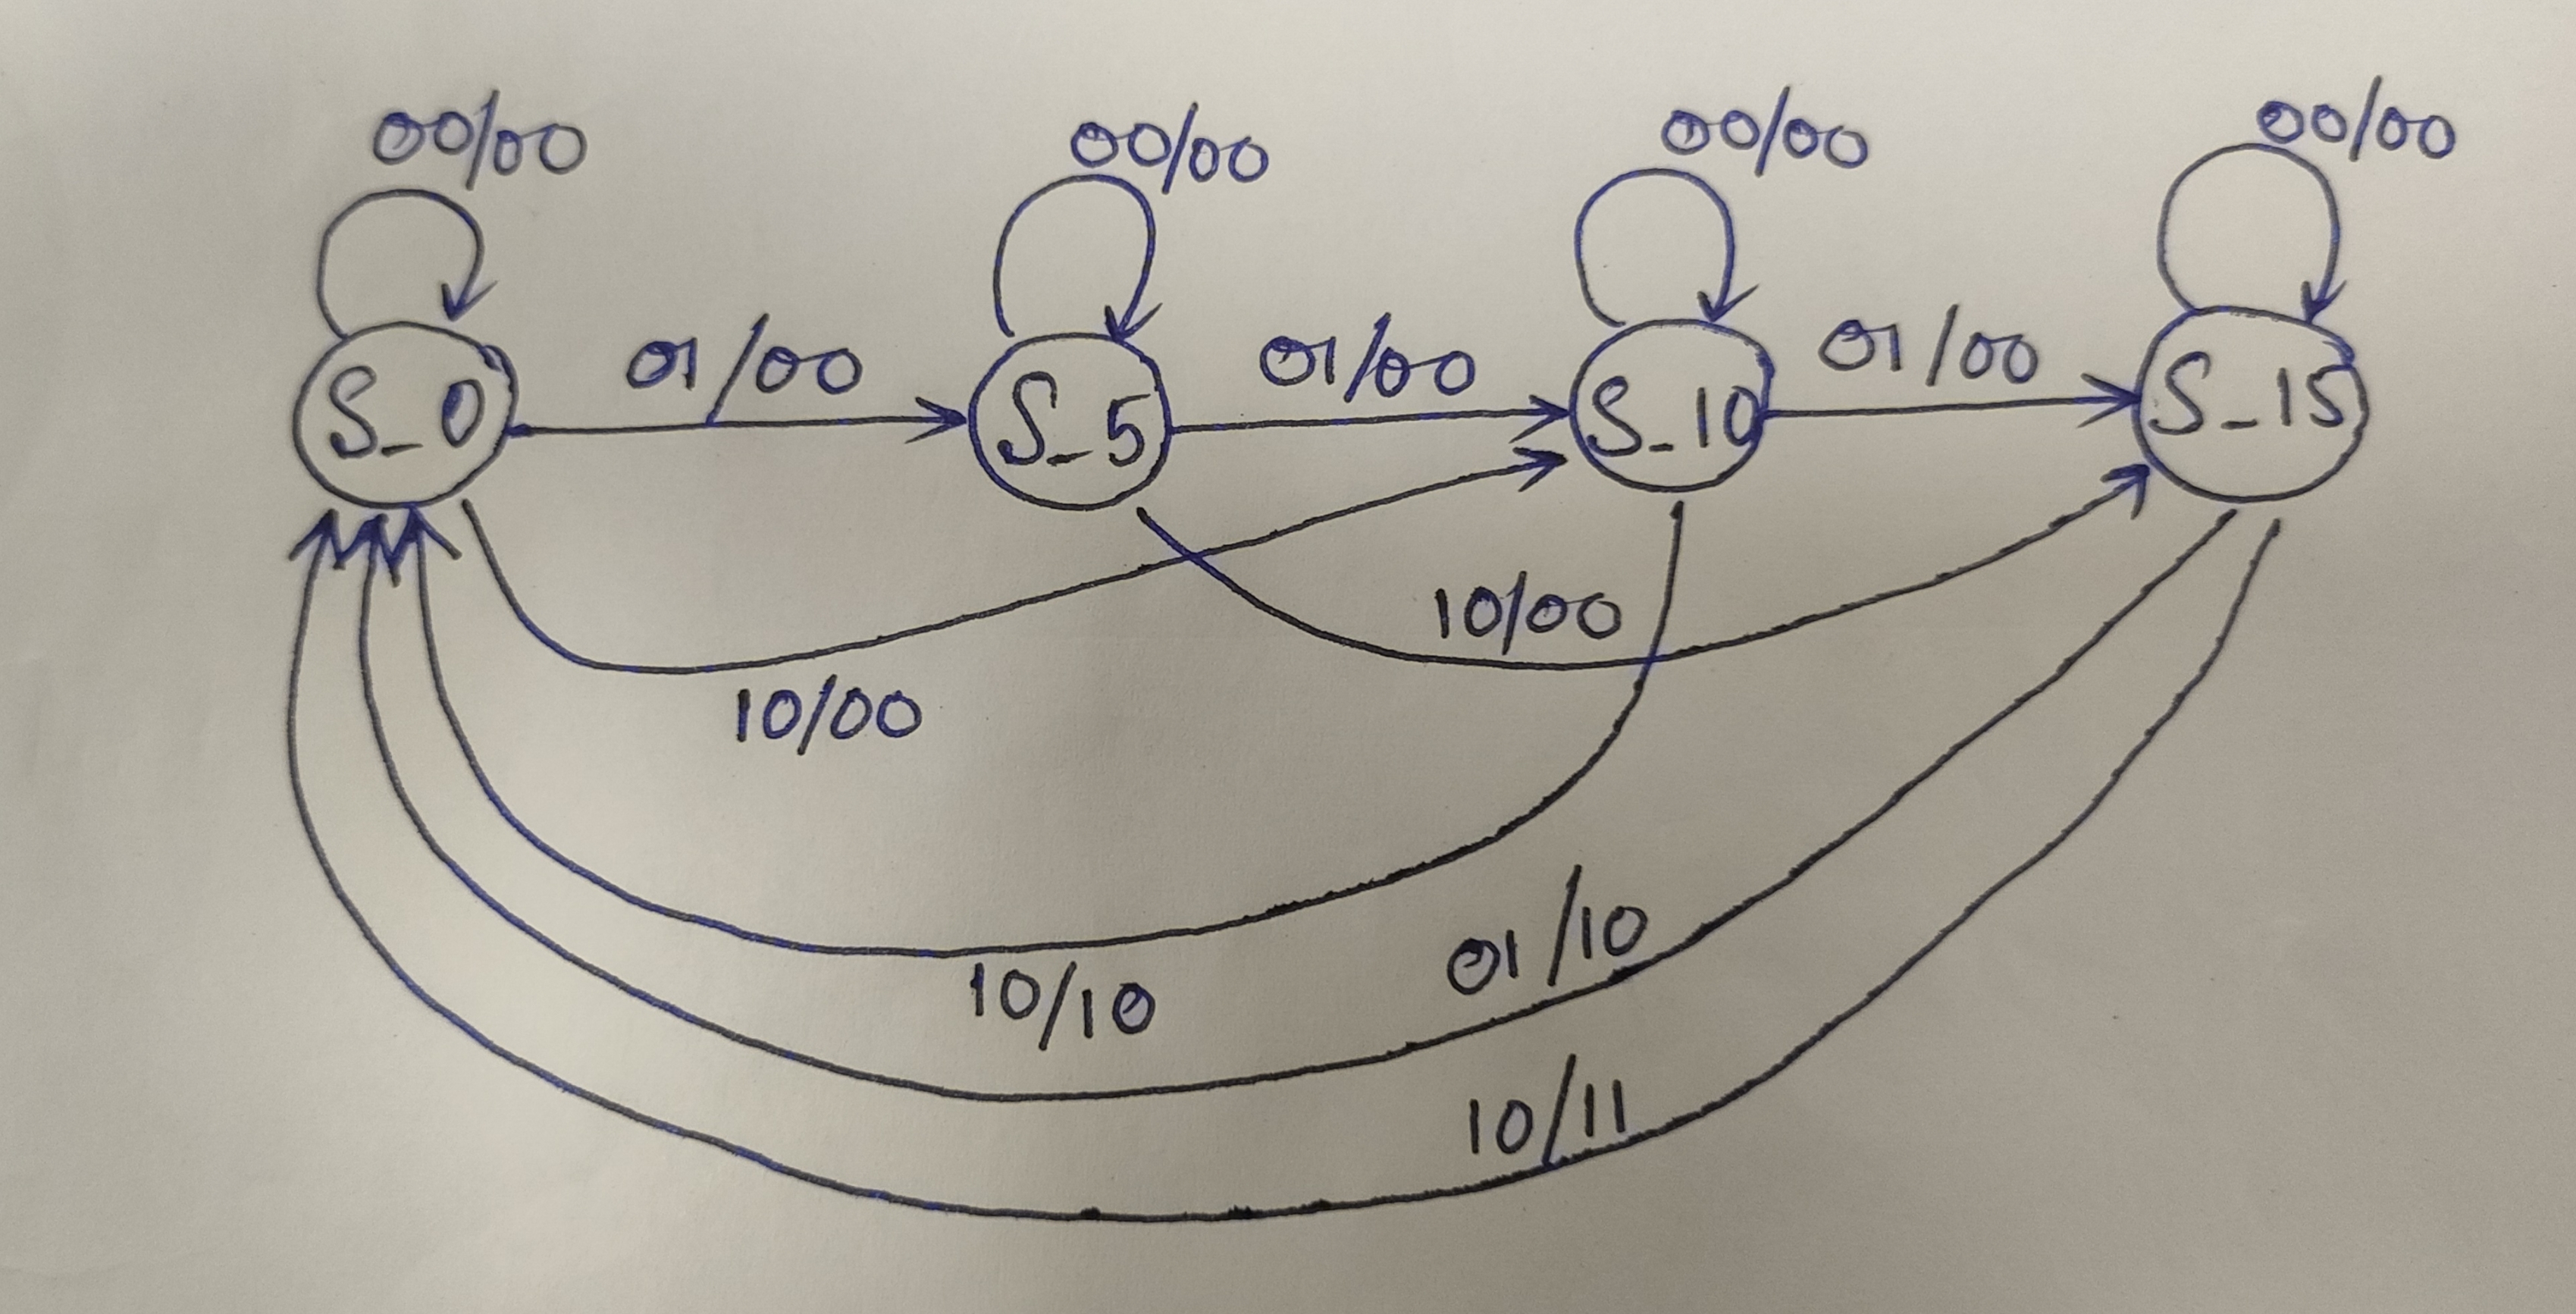 00/00 00/00 00/00 00/00
01/00 01/00 01/00
S_0 S_5 S_10 S_15
10/00
10/00
01/10
10/10
10/11